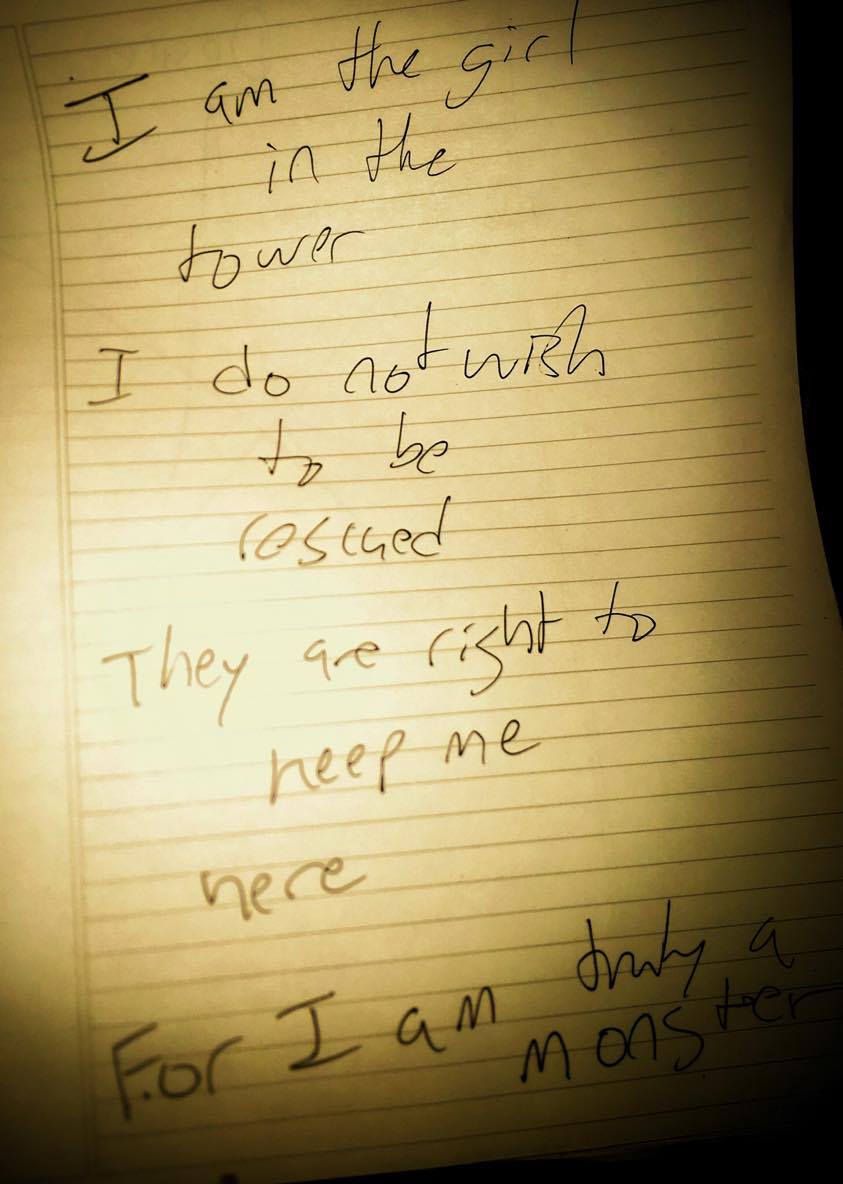 I am the girl
in the
tower
I do not wish
to be
rescued
They are right to
keep me
here
For I am truly a
monster